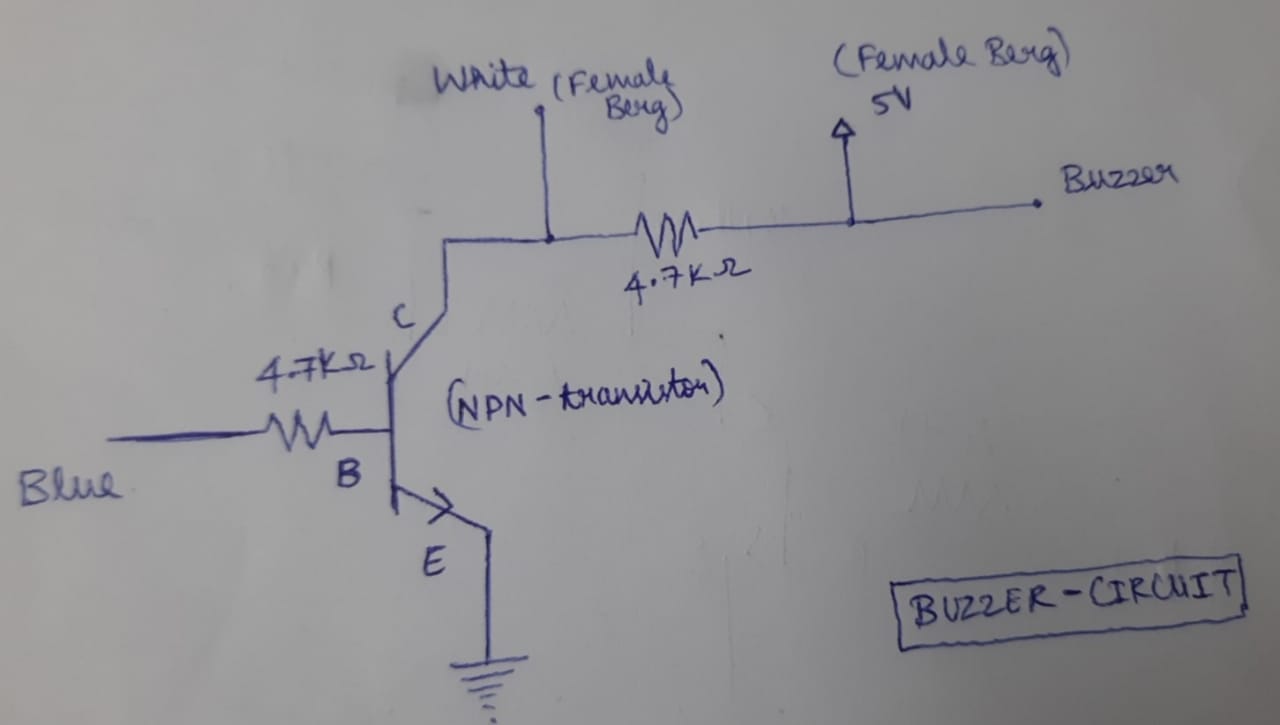 White (Female
Berg)
(Female Berg)
5V
Buzzer
4.7KΩ
C
4.7KΩ
(NPN-transistor)
B
Blue
E
BUZZER-CIRCUIT